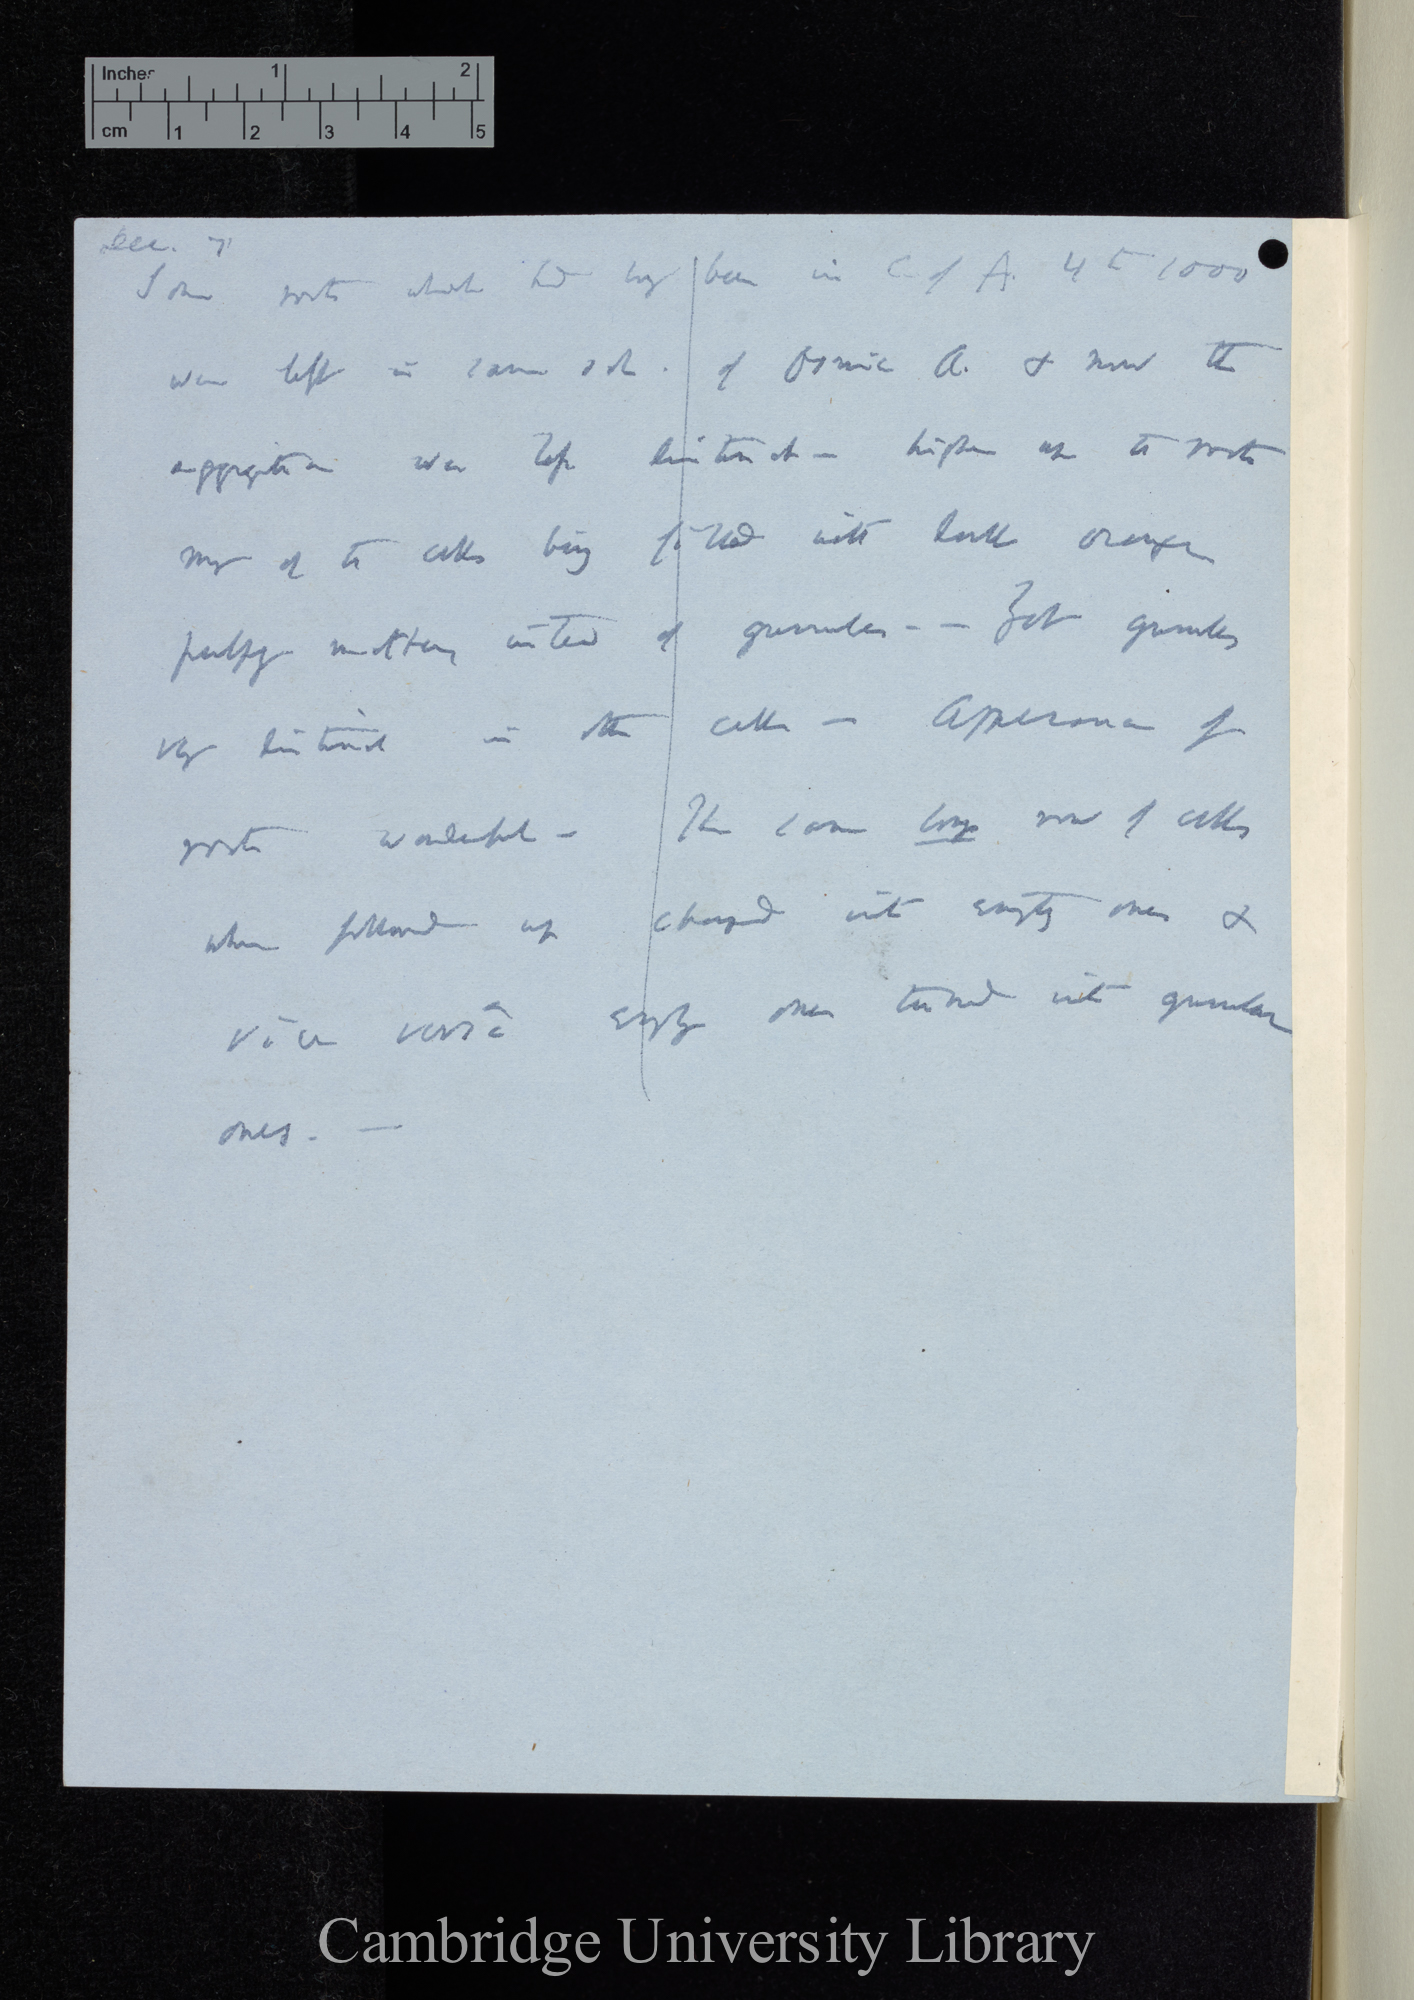 Inches 1 2
cm 1 2 3 4 5
Dec. 7
Some roots which had long been in C of A. 4 to 1000
were left in same sol. of Osmic A. & now the
aggregation was less distinct — higher up the roots
many of the cells being filled with dark orange
pulpy matter, instead of granules — — But granules
very distinct in other cells — Appearance of
roots wonderful — The same long row of cells
when followed up changed into empty ones &
vice versâ empty ones turned into granular
ones. —
Cambridge University Library